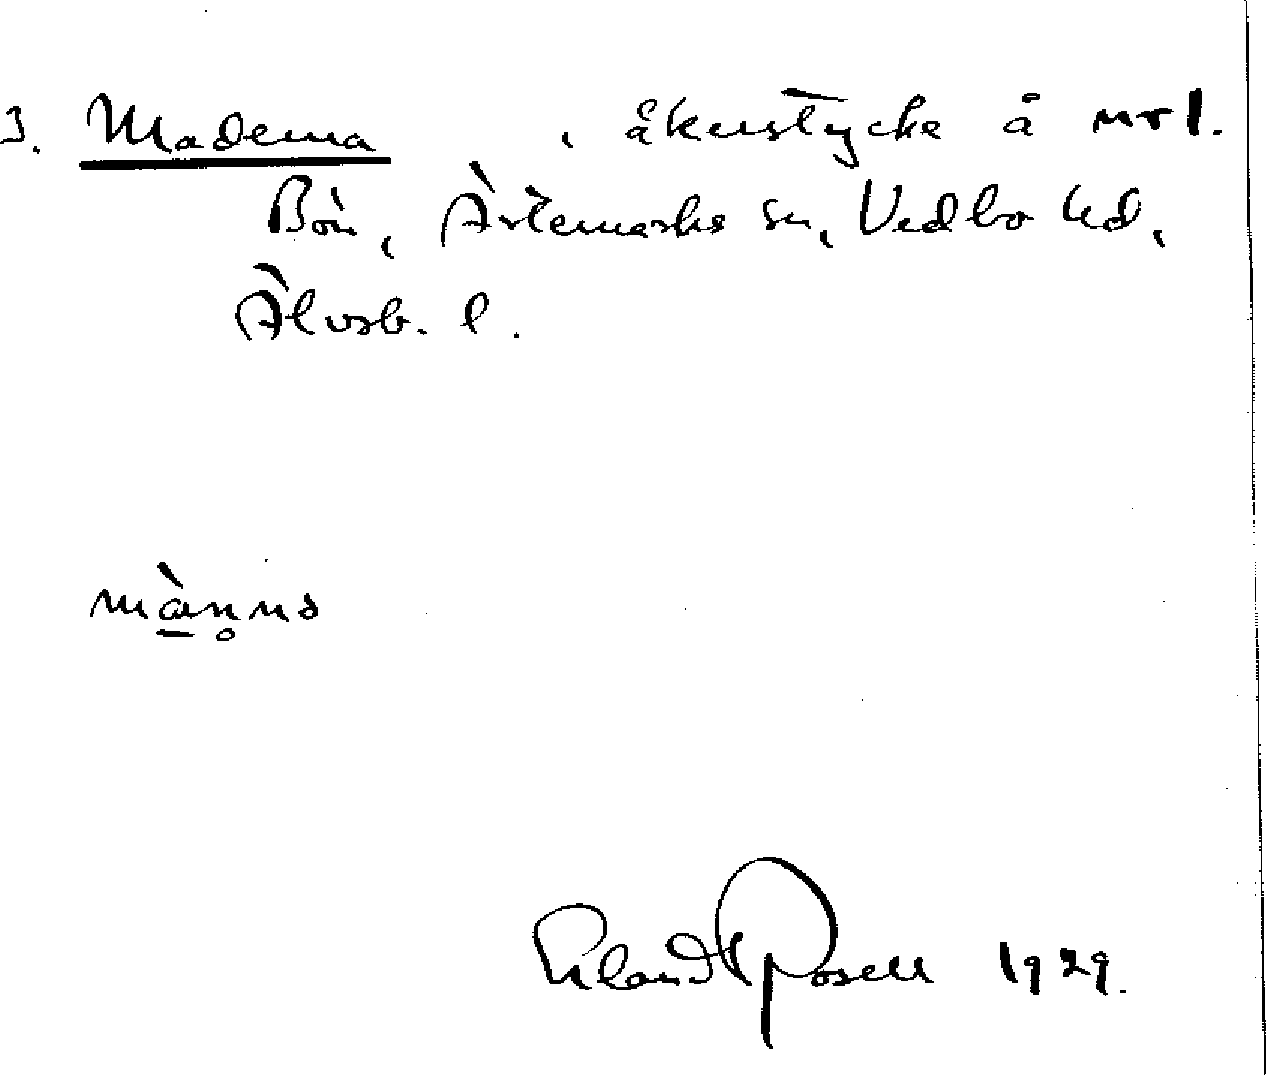 3. Maderna, åkerstycke å nr 1.
Bön, Ärtemarks sn, Vedbo hd,
Älvsb. l.
mànns
Erland Rosell 1929.